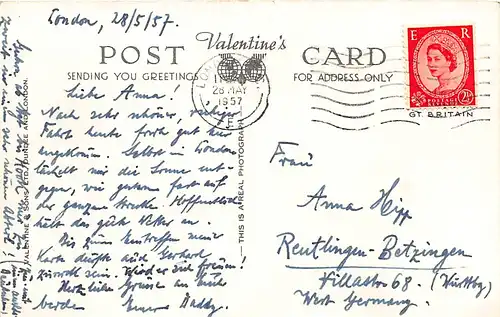 London, 28/5/57.
POST Valentine's CARD
SENDING YOU GREETINGS
FOR ADDRESS ONLY
28 MAY
1957
E R
POSTAGE REVENUE
2½D
GT. BRITAIN
Liebe Anna!
Nach sehr schöner, ruhiger
Fahrt heute früh gut hier
angekommen. Selbst in London
lächelt mir die Sonne ent-
gegen, wie gestern fast auf
der ganzen Strecke. Hoffentlich
hält das gute Wetter an.
Bis zum Eintreffen meiner
Karte dürfte auch Gerhard
zurück sein. Wird er sich freuen!
Herzliche Grüsse an Euch
beide Euer Daddy
VALENTINE & SONS LTD. DUNDEE AND LONDON
THIS IS A REAL PHOTOGRAPH
Frau
Anna Hipp
Reutlingen-Betzingen
Villastr 68. (Württbg)
West Germany.